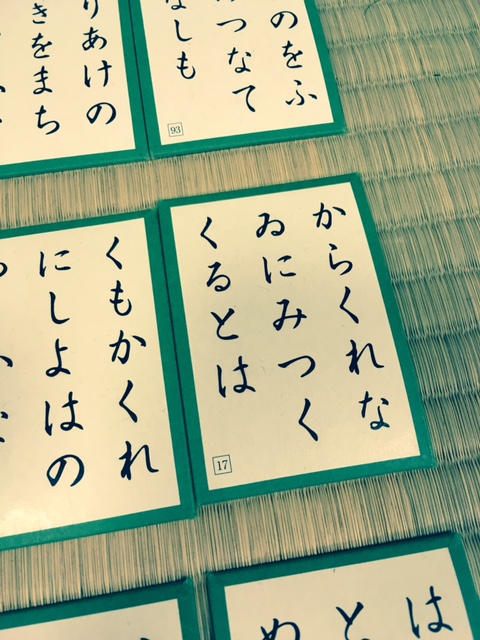 のをふ
つなて
なしも
93
りあけの
きをまち
からくれな
ゐにみつく
くるとは
17
くもかくれ
にしよはの
は
と